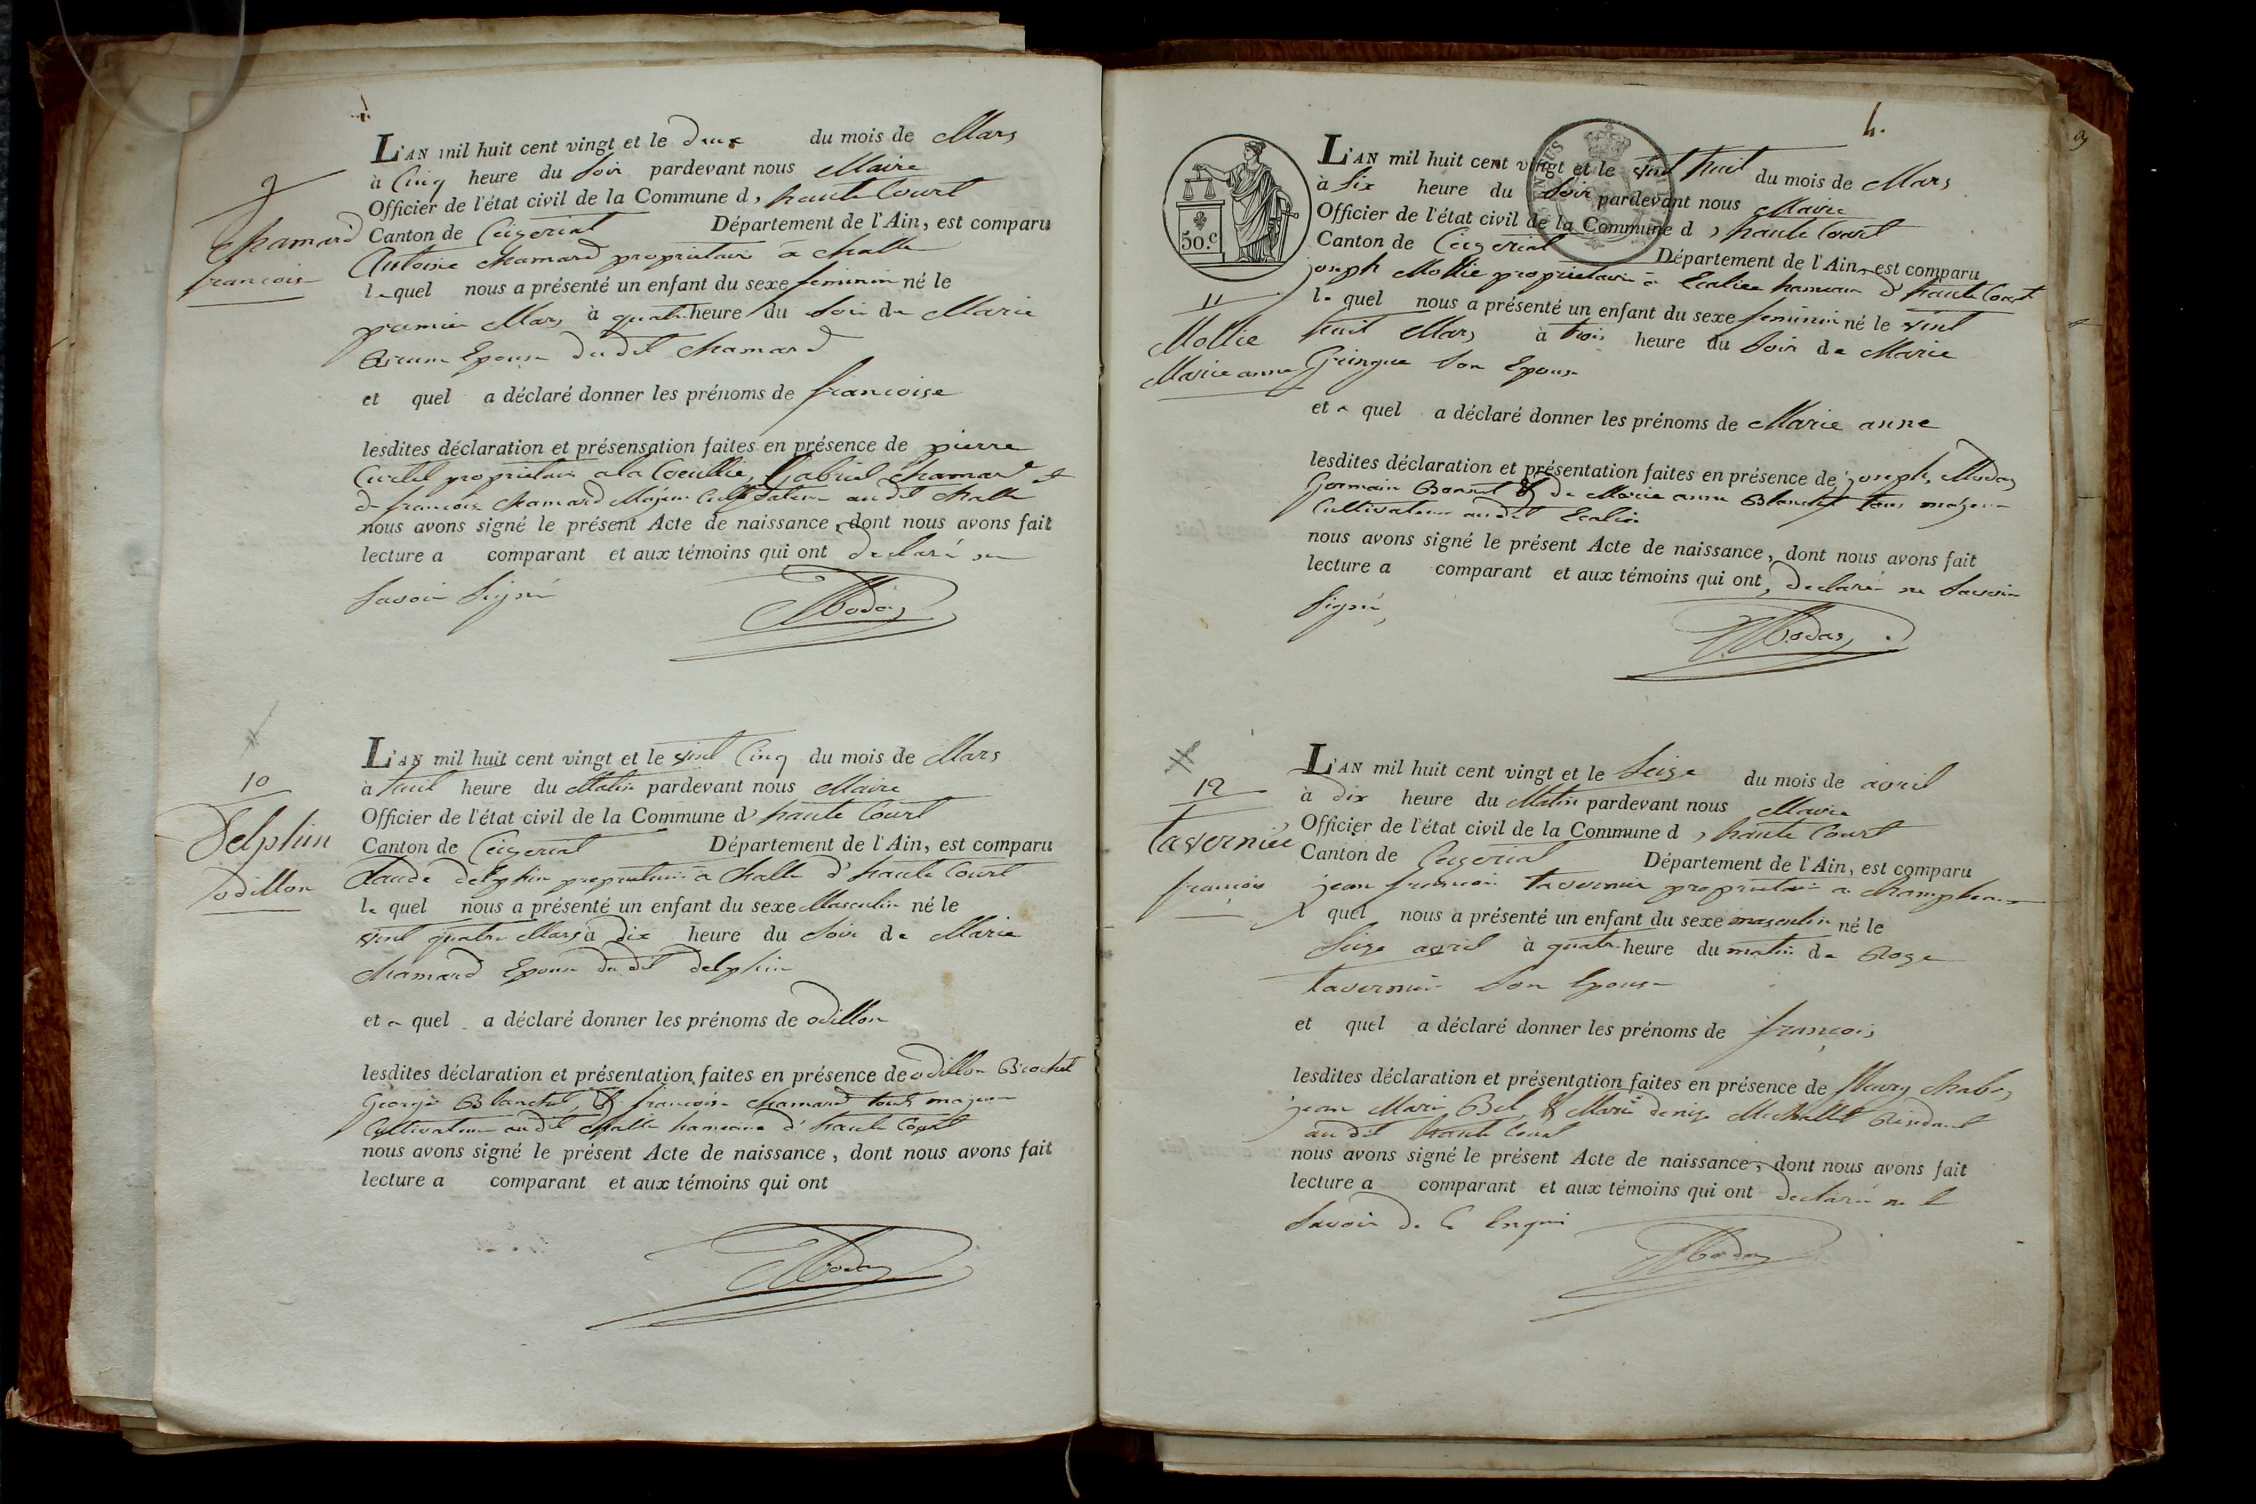 9
Chamard
francoise
L'AN mil huit cent vingt et le deux du mois de Mars
à Cinq heure du Soir pardevant nous Maire
Officier de l'état civil de la Commune d, haute Court
Canton de Ceizeriat Département de l'Ain, est comparu
Antoine Chamard proprietaire à Challe
lequel nous a présenté un enfant du sexe feminin né le
premier Mars à quatre heure du Soir de Marie
Epouse dudit Chamard
et quel a déclaré donner les prénoms de francoise
lesdites déclaration et présensation faites en présence de pierre
Curtil proprietaire a la Coeullie, Gabriel Chamard et
de francoise Chamard Majeur Cultivateur audit Challe
nous avons signé le présent Acte de naissance, dont nous avons fait
lecture a comparant et aux témoins qui ont declaré ne
Savoir Signé
Moday
10
Delphin
odillon
L'AN mil huit cent vingt et le vint Cinq du mois de Mars
à huit heure du Matin pardevant nous Maire
Officier de l'état civil de la Commune d' haute Court
Canton de Ceizeriat Département de l'Ain, est comparu
Claude delphin proprietaire à Challe d'haute Court
le quel nous a présenté un enfant du sexe Masculin né le
vint quatre Mars à dix heure du Soir de Marie
Chamard Epouse dudit delphin
et a quel a déclaré donner les prénoms de odillon
lesdites déclaration et présentation faites en présence de odillon Brochet
George Blanchet, & francoise Chamard tous majeur
Cultivateur audit Challe hameau d'haute Court
nous avons signé le présent Acte de naissance, dont nous avons fait
lecture a comparant et aux témoins qui ont
Moday
4.
50.c
11
Mollie
Marie anne
L'AN mil huit cent vingt et le vint huit du mois de Mars
à Six heure du Soir pardevant nous Maire
Officier de l'état civil de la Commune d, haute Court
Canton de Ceizeriat Département de l'Ain, est comparu
joseph Mollie proprietaire à hameau d'haute Court
le quel nous a présenté un enfant du sexe feminin né le vint
huit Mars à trois heure du Soir de Marie
Gringue Son Epouse
et a quel a déclaré donner les prénoms de Marie anne
lesdites déclaration et présentation faites en présence de joseph Moday
Germain & de Marie anne Blanchet tous majeur
Cultivateur audit
nous avons signé le présent Acte de naissance, dont nous avons fait
lecture a comparant et aux témoins qui ont, declaré ne Savoir
Signé,
Moday
12
tavernier
françois
L'AN mil huit cent vingt et le Seize du mois de avril
à dix heure du Matin pardevant nous Maire
Officier de l'état civil de la Commune d, haute Court
Canton de Ceizeriat Département de l'Ain, est comparu
jean francois tavernier proprietaire a
l quel nous a présenté un enfant du sexe masculin né le
Seize avril à quatre heure du matin de Roze
tavernier Son Epouse
et quel a déclaré donner les prénoms de françois
lesdites déclaration et présentation faites en présence de fleury
jean Marie Bel & Marie denize Michallet Residant
audit haute Court
nous avons signé le présent Acte de naissance, dont nous avons fait
lecture a comparant et aux témoins qui ont declaré ne le
Savoir de Ce Enquis
Moday